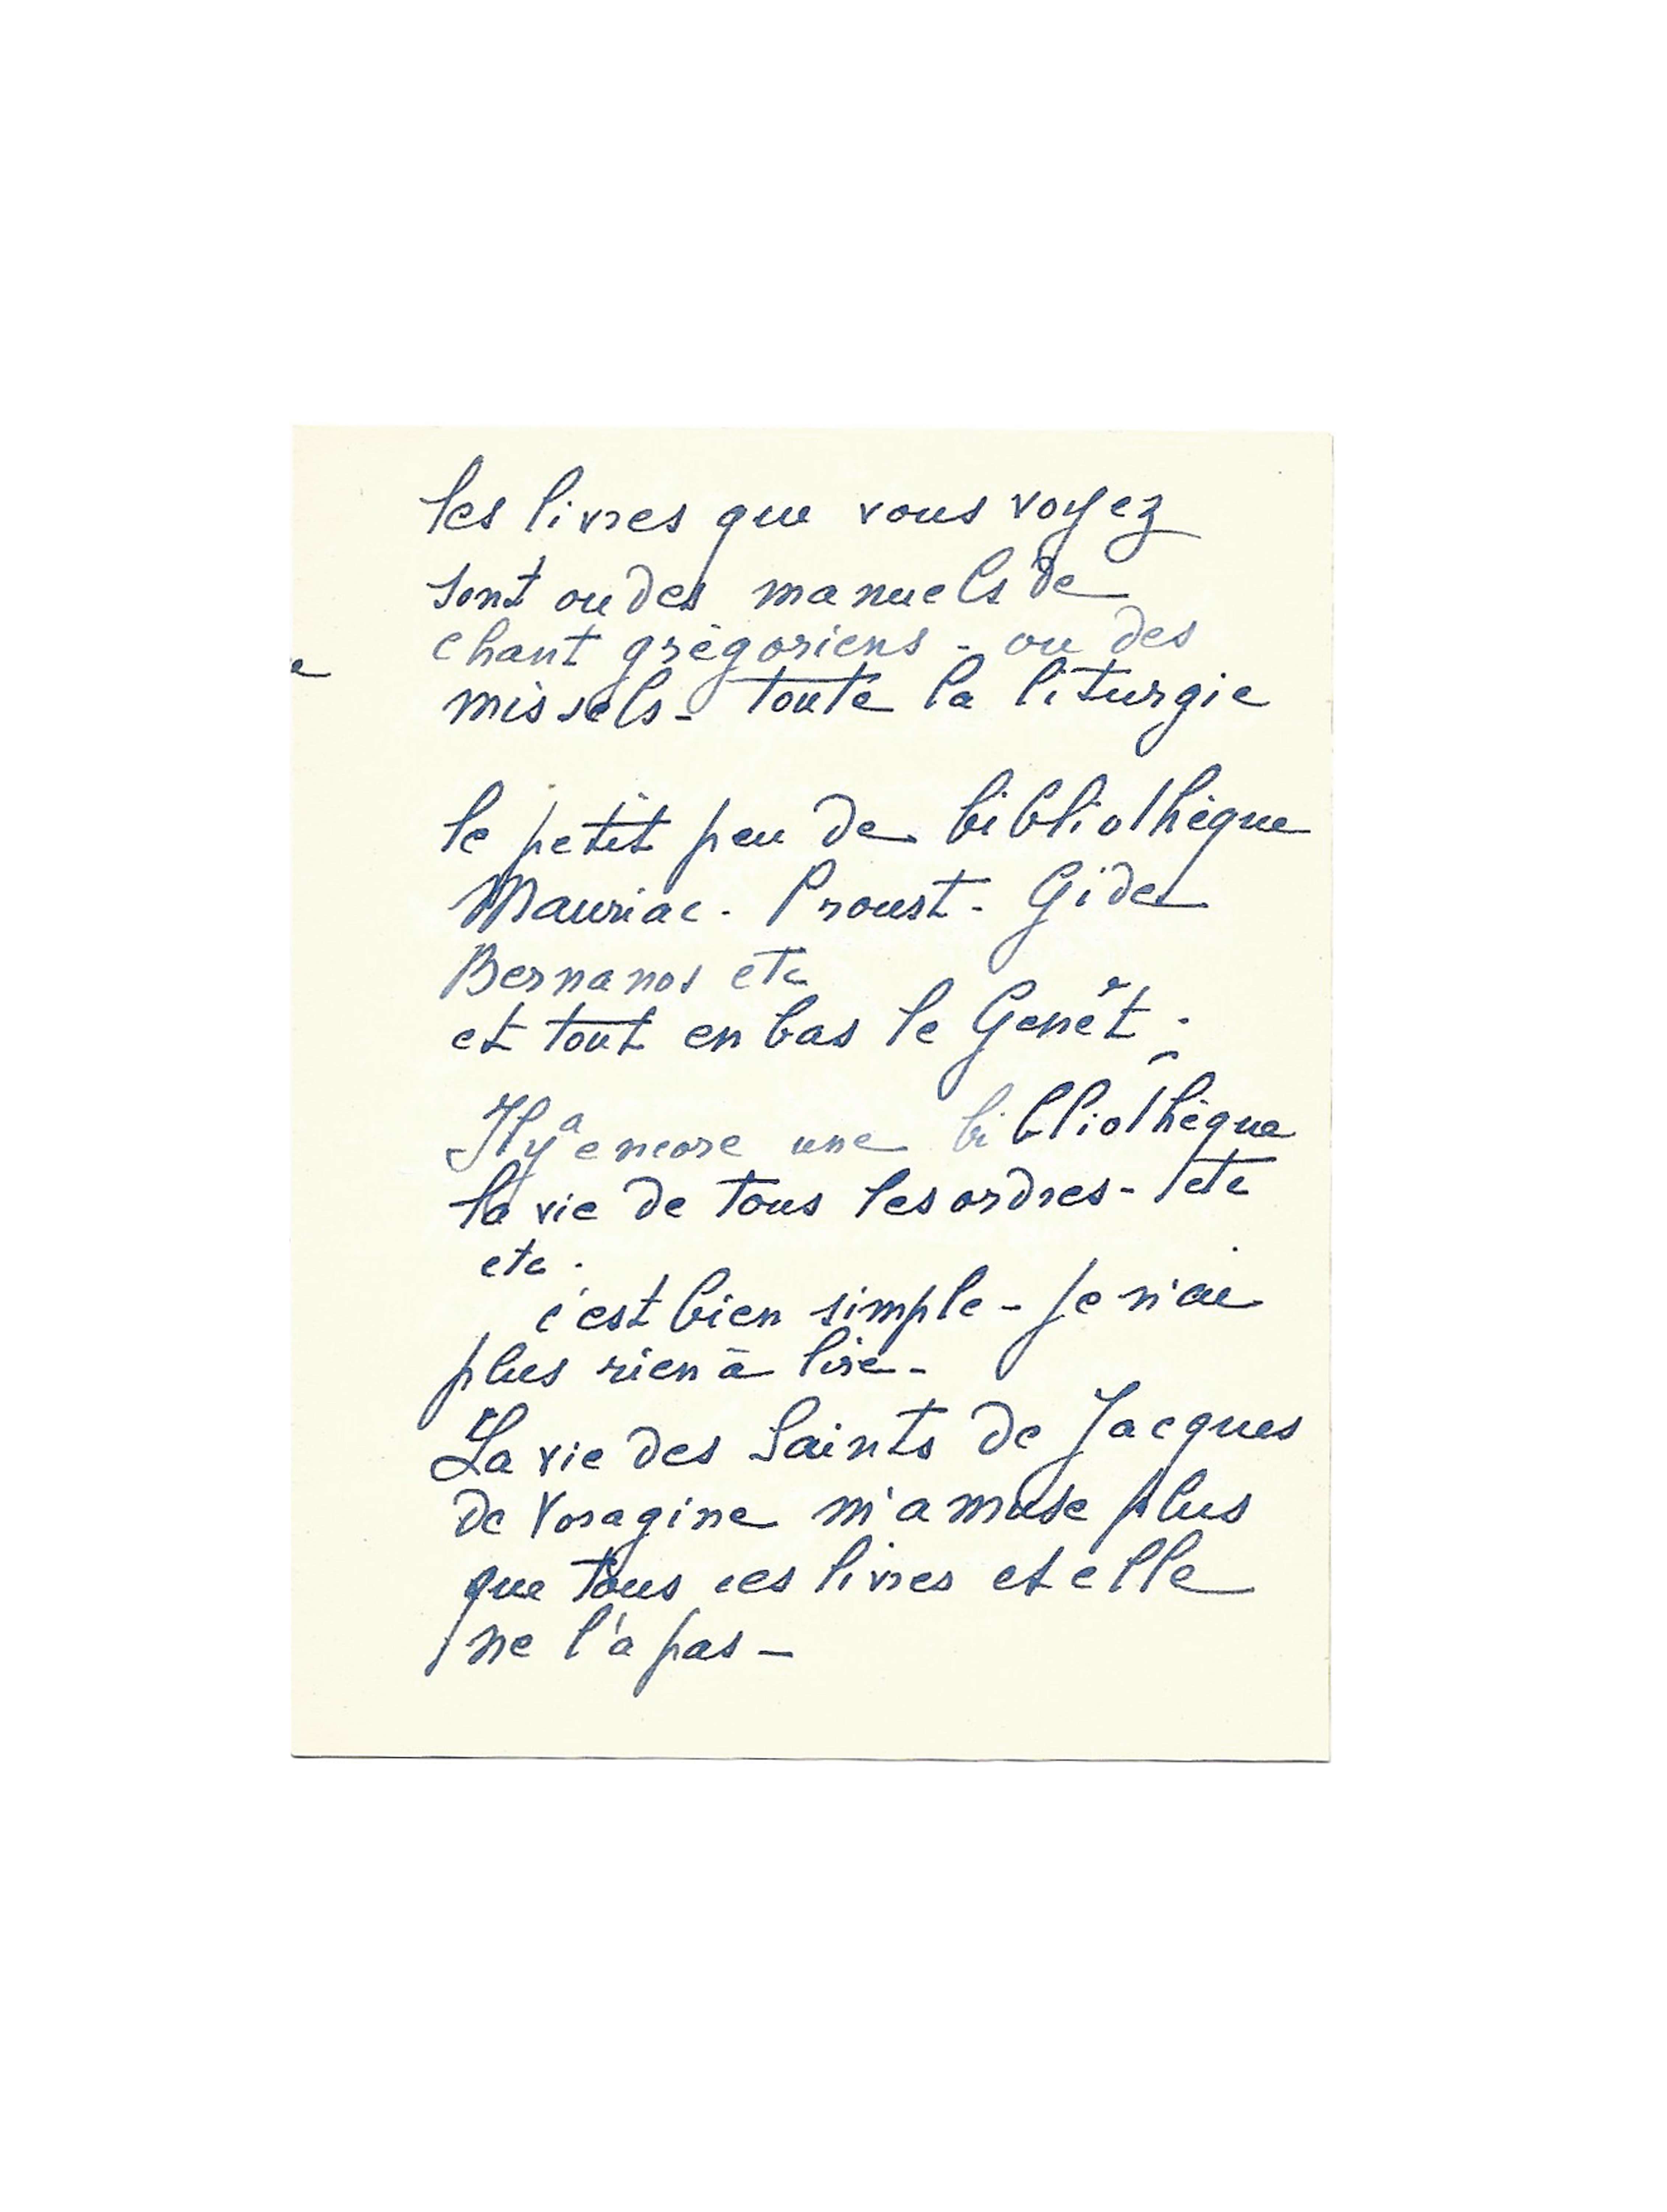 les livres que vous voyez
sont ou des manuels de
chant grégoriens - ou des
missels - toute la liturgie
le petit peu de bibliothèque
Mauriac - Proust - Gide
Bernanos etc
et tout en bas le Genêt.
Il y a encore une bibliothèque
la vie de tous les ordres - etc
etc.
c'est bien simple - je n'ai
plus rien à lire -
La vie des Saints de Jacques
de Voragine m'amuse plus
que tous ces livres et elle
ne l'a pas -